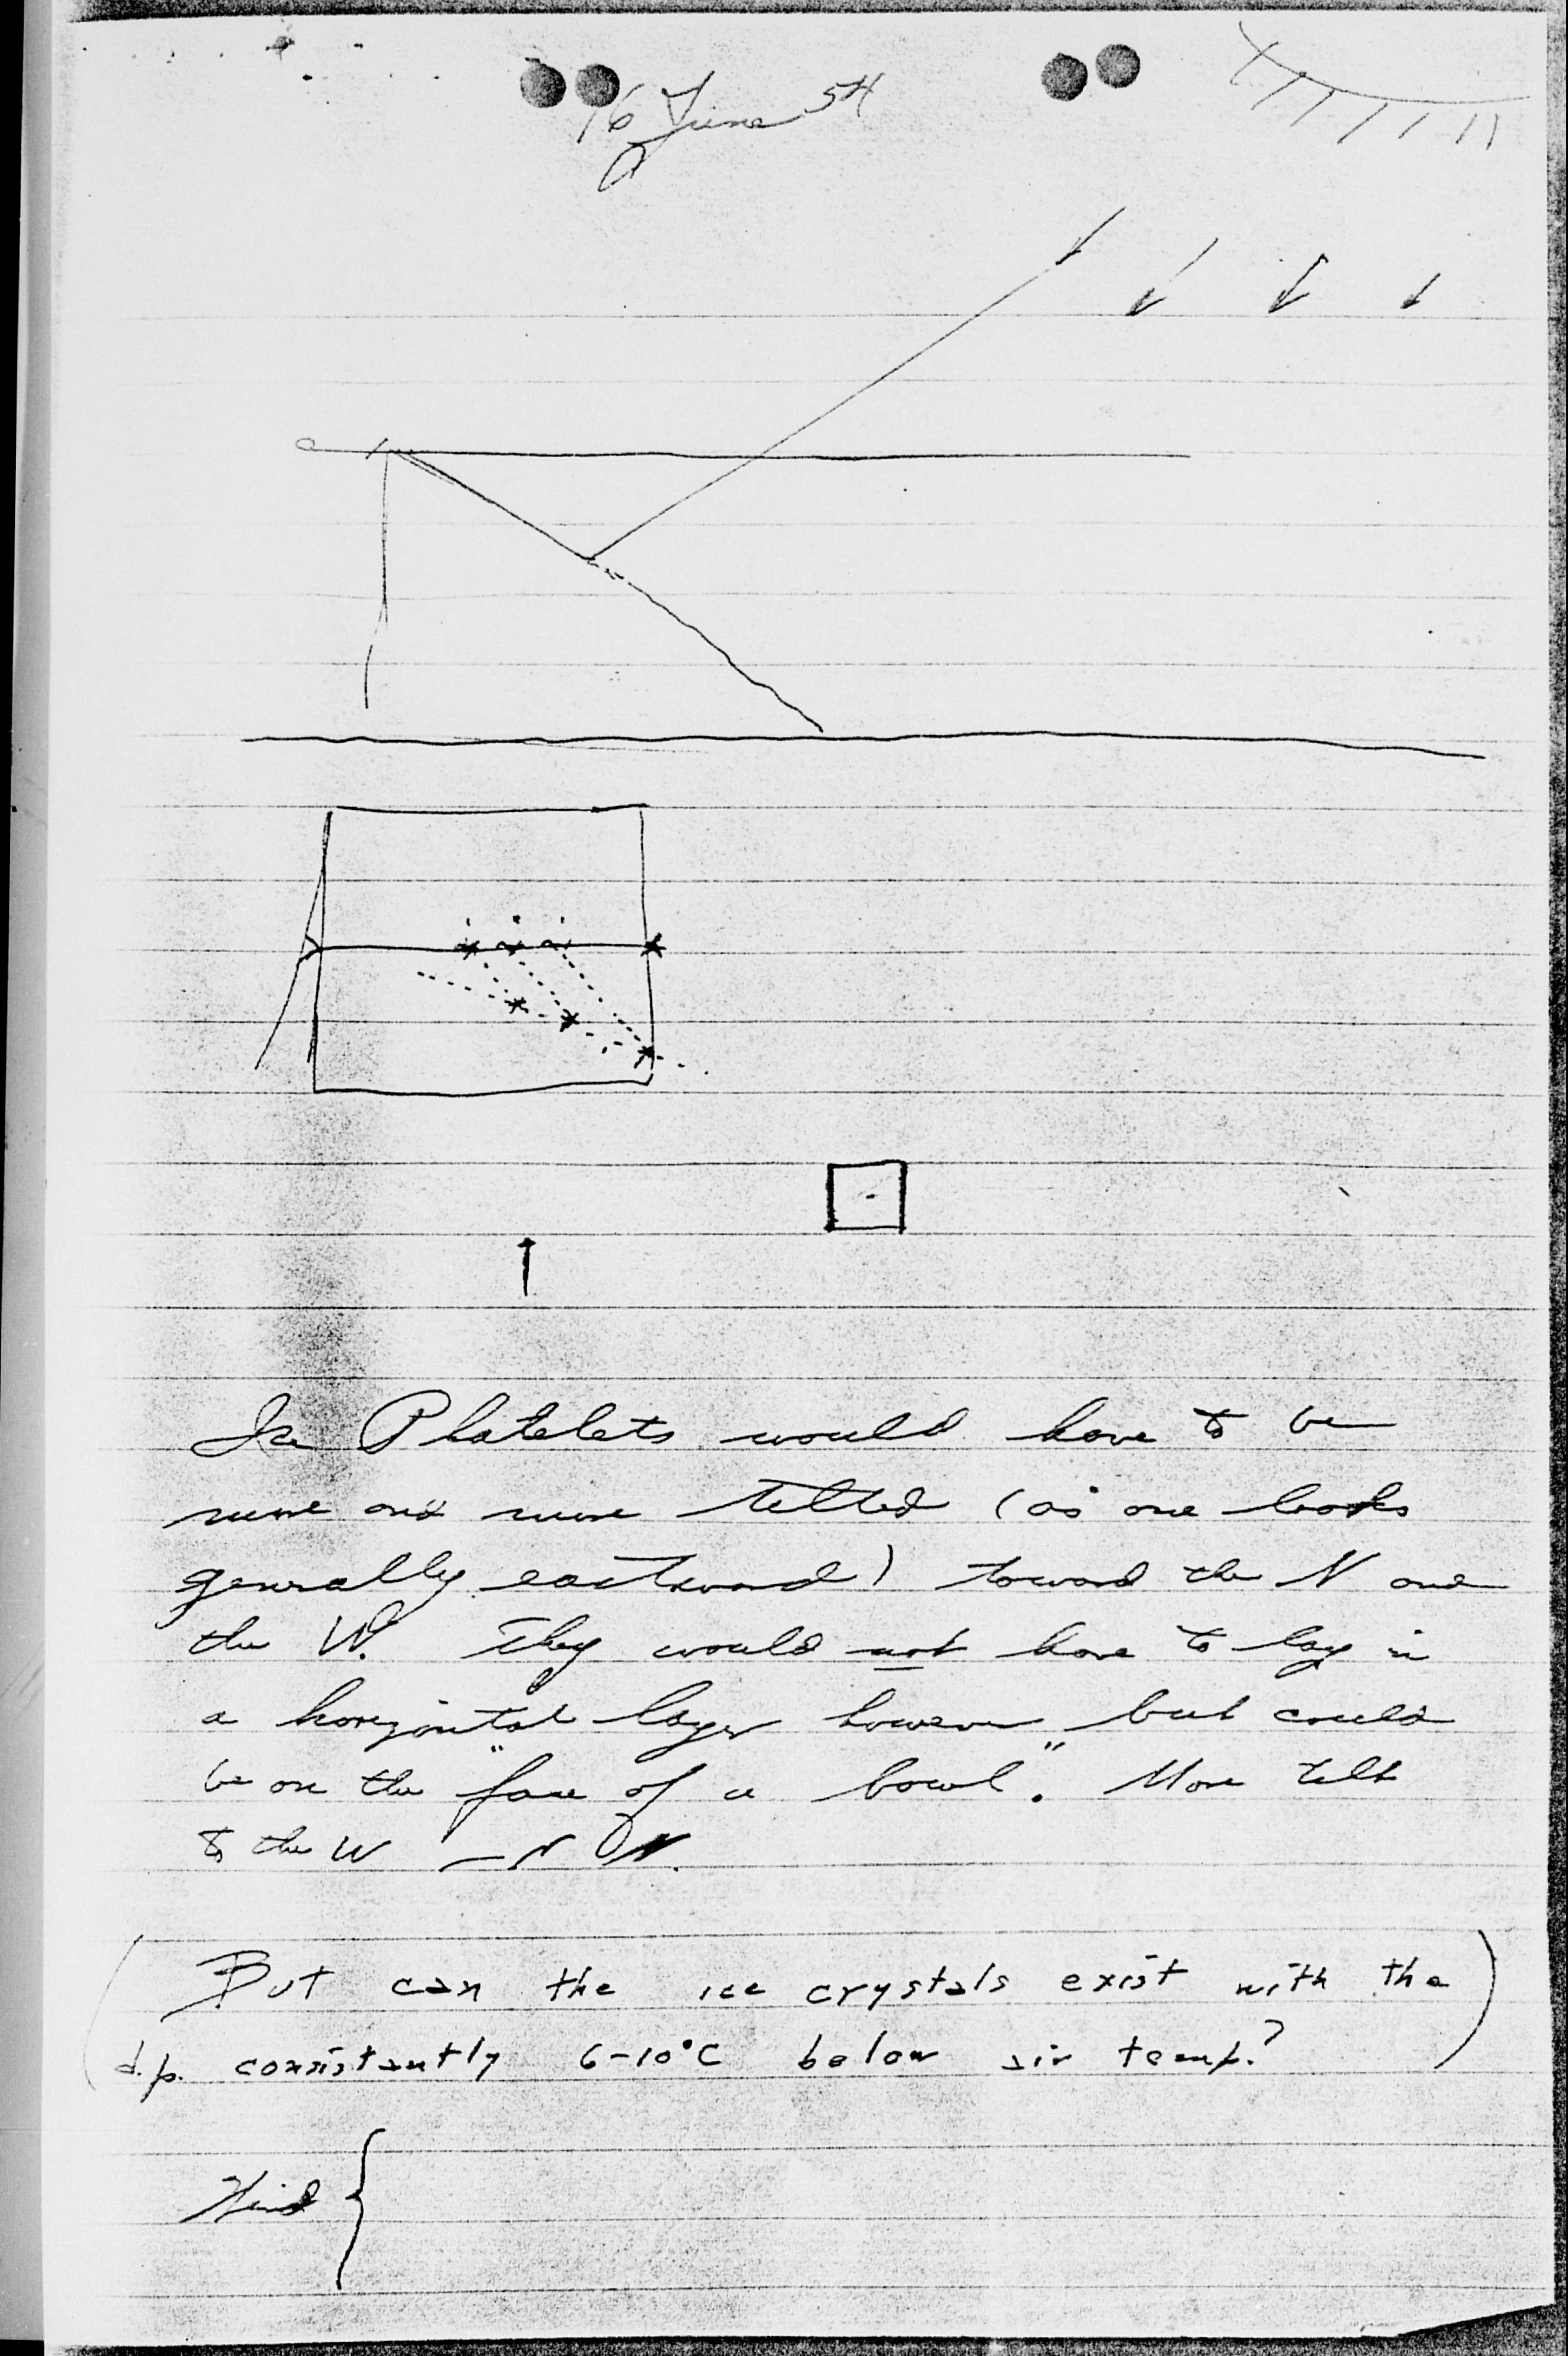 16 June 54
Ice Platelets would have to be
more and more tilted (as one looks
generally eastward) toward the N and
the W. They would not have to lay in
a horizontal layer however but could
be on the "face of a bowl". More tilt
to the W – N
(But can the ice crystals exist with the
d.p. consistantly 6-10°C below air temp.?)
Wind {